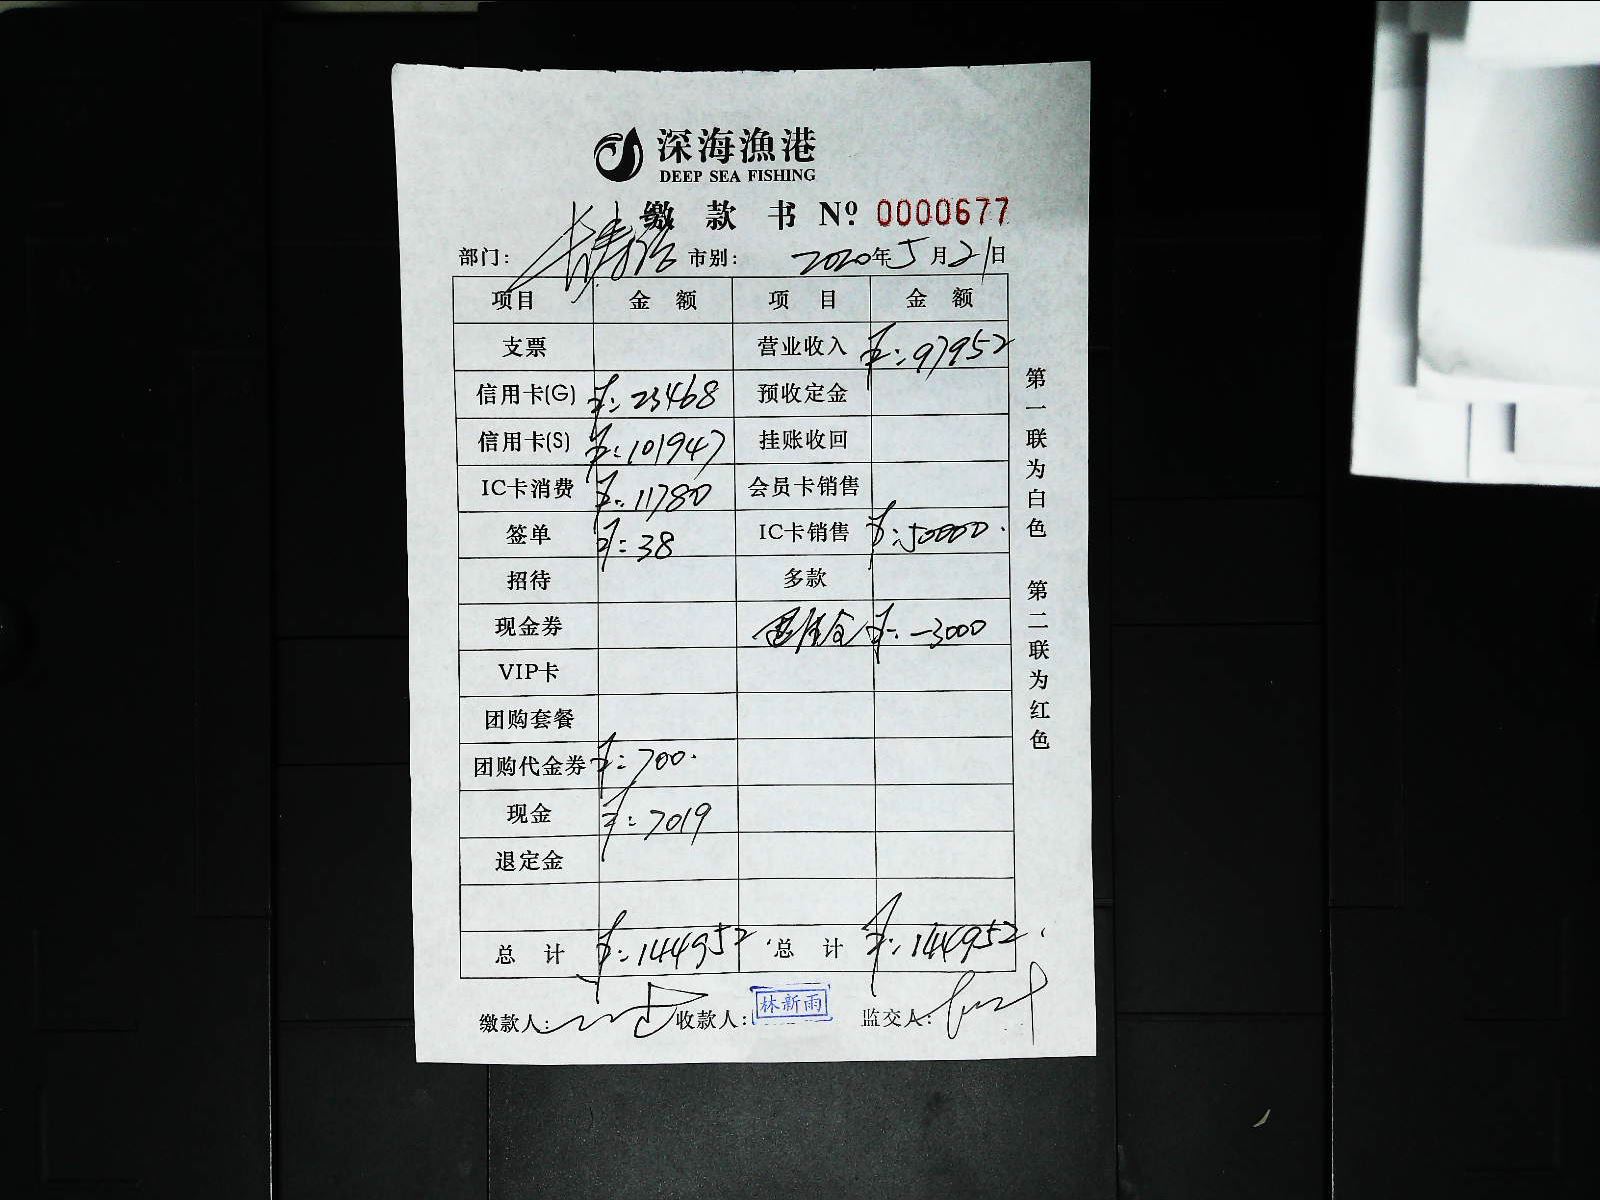 深海漁港
DEEP SEA FISHING
缴款书 Nº 0000677
部门： 市别： 2020年5月21日
项目 金额 项目 金额
支票 营业收入 ¥:97952
信用卡(G) ¥:23468 预收定金
信用卡(S) ¥:101947 挂账收回
IC卡消费 ¥:11780 会员卡销售
签单 ¥:38 IC卡销售 ¥:50000.
招待 多款
现金券 ¥:-3000
VIP卡
团购套餐
团购代金券 ¥:700.
现金 ¥:7019
退定金
总计 ¥:144952 总计 ¥:144952.
缴款人： 收款人：林新雨 监交人：
第一联为白色 第二联为红色